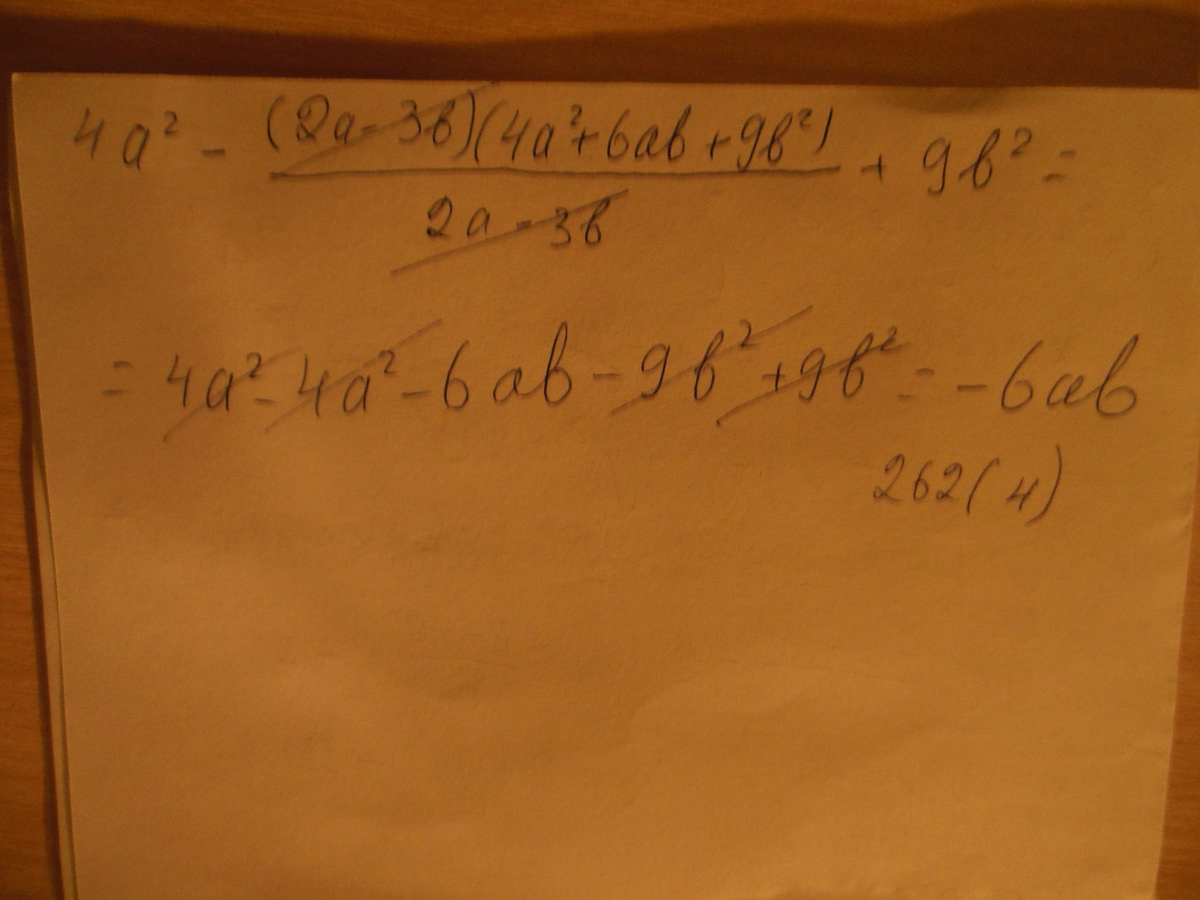 4a² - (2a - 3b)(4a² + 6ab + 9b²) / 2a - 3b + 9b² =
= 4a² - 4a² - 6ab - 9b² + 9b² = - 6ab
262(4)